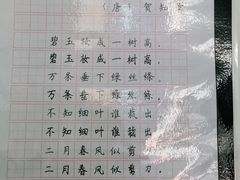 （唐）贺知章
碧玉妆成一树高，
碧玉妆成一树高，
万条垂下绿丝绦。
万条垂下绿丝绦。
不知细叶谁裁出，
不知细叶谁裁出，
二月春风似剪
二月春风似剪刀。